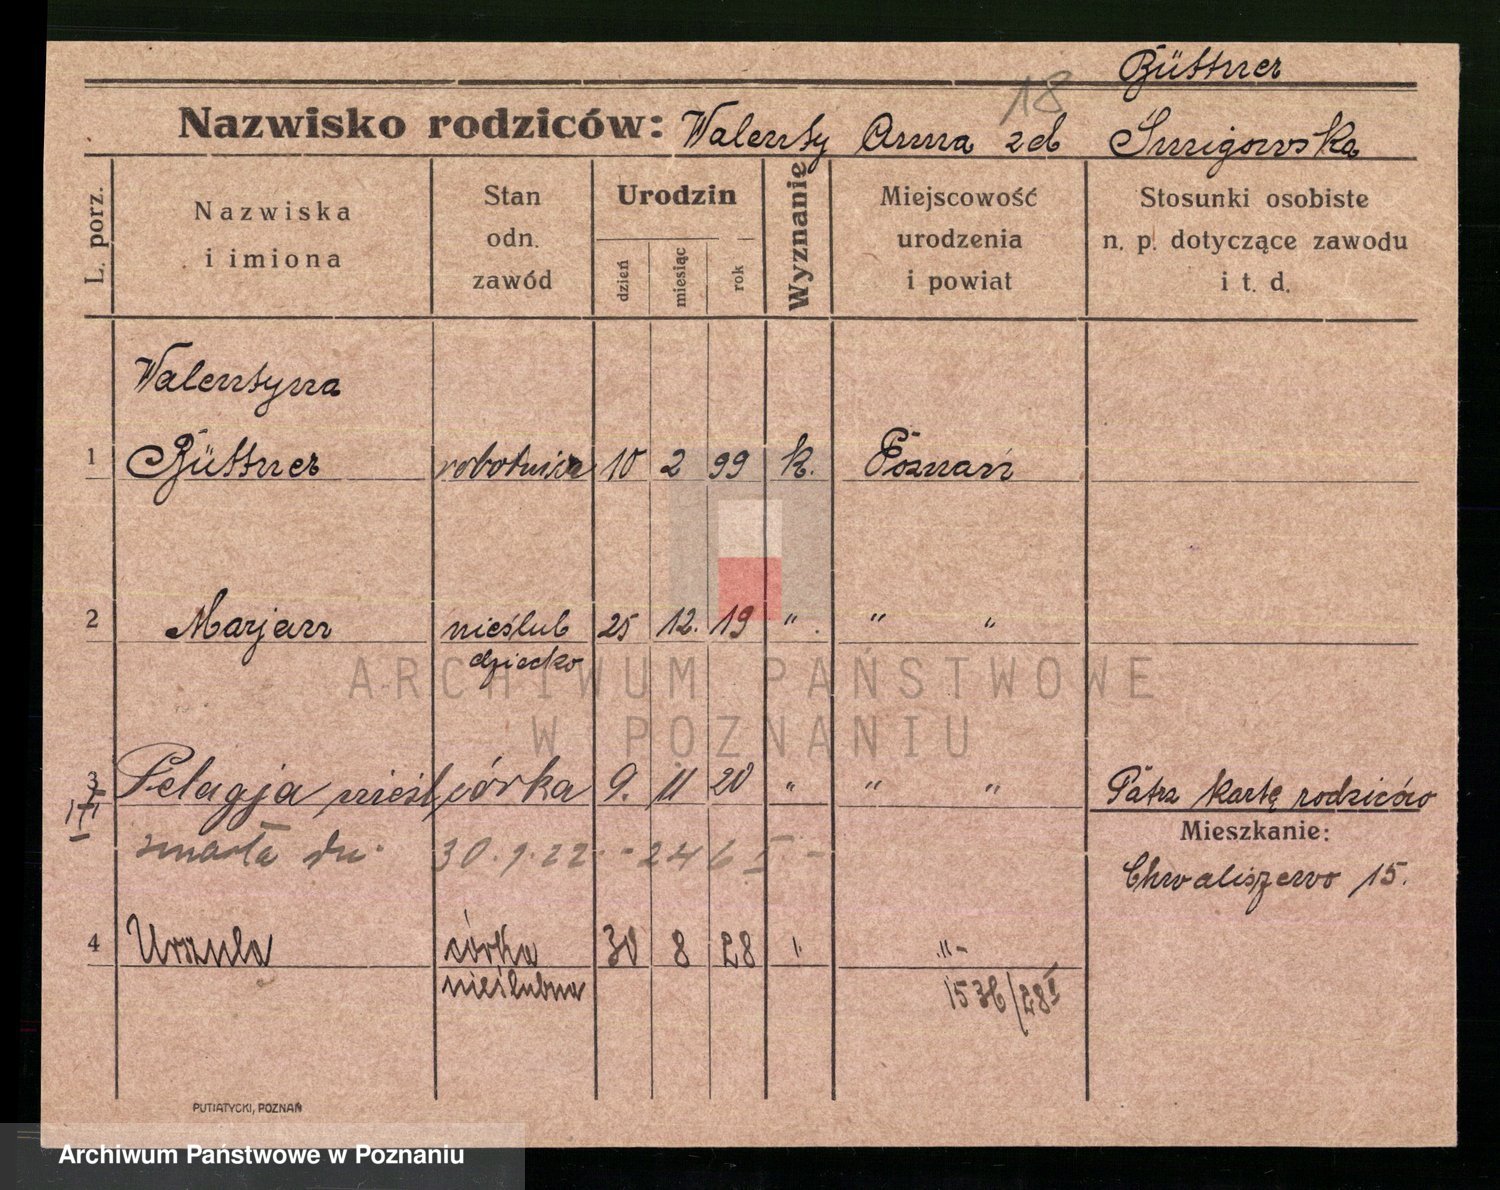 Büttner
18
Nazwisko rodziców: Walenty Anna zd Śmigowska
L. porz.
Nazwiska
i imiona
Stan
odn.
zawód
Urodzin
dzień
miesiąc
rok
Wyznanie
Miejscowość
urodzenia
i powiat
Stosunki osobiste
n. p. dotyczące zawodu
i t. d.
Walentyna
1 Büttner robotnica 10 2 99 k. Poznań
2 Marjan nieślub 25 12. 19 " . " "
dziecko
3 Pelagja nieśl córka 9. 11 20 " " " Patrz kartę rodziców
Mieszkanie:
zmarła dn. 30.9.22 - 246 I -
Chwaliszewo 15.
4 Urszula córka 30 8 28 " "-
nieślubna
1536/28 I
PUTIATYCKI, POZNAŃ
ARCHIWUM PAŃSTWOWE
W POZNANIU
Archiwum Państwowe w Poznaniu